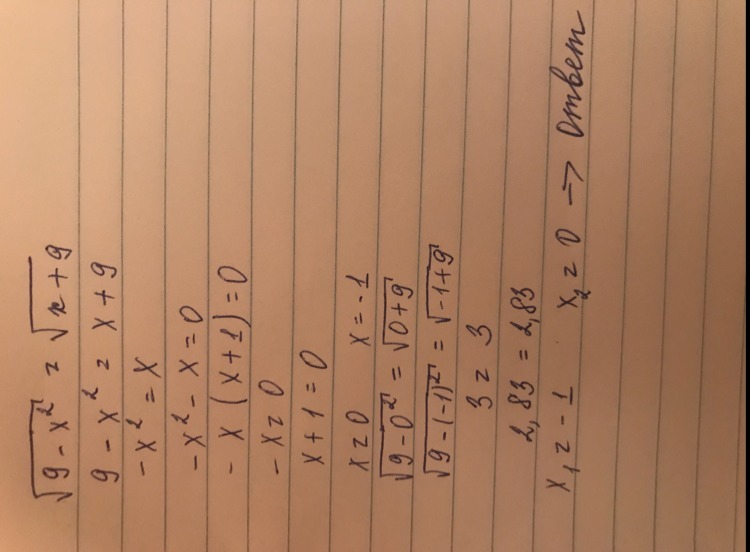 √9 - x² = √x + 9
9 - x² = x + 9
- x² = x
- x² - x = 0
- x (x + 1) = 0
- x = 0
x + 1 = 0
x = 0 x = -1
√9 - 0² = √0 + 9
√9 - (-1)² = √-1 + 9
3 = 3
2,83 = 2,83
x₁ = -1 x₂ = 0 → Ответ